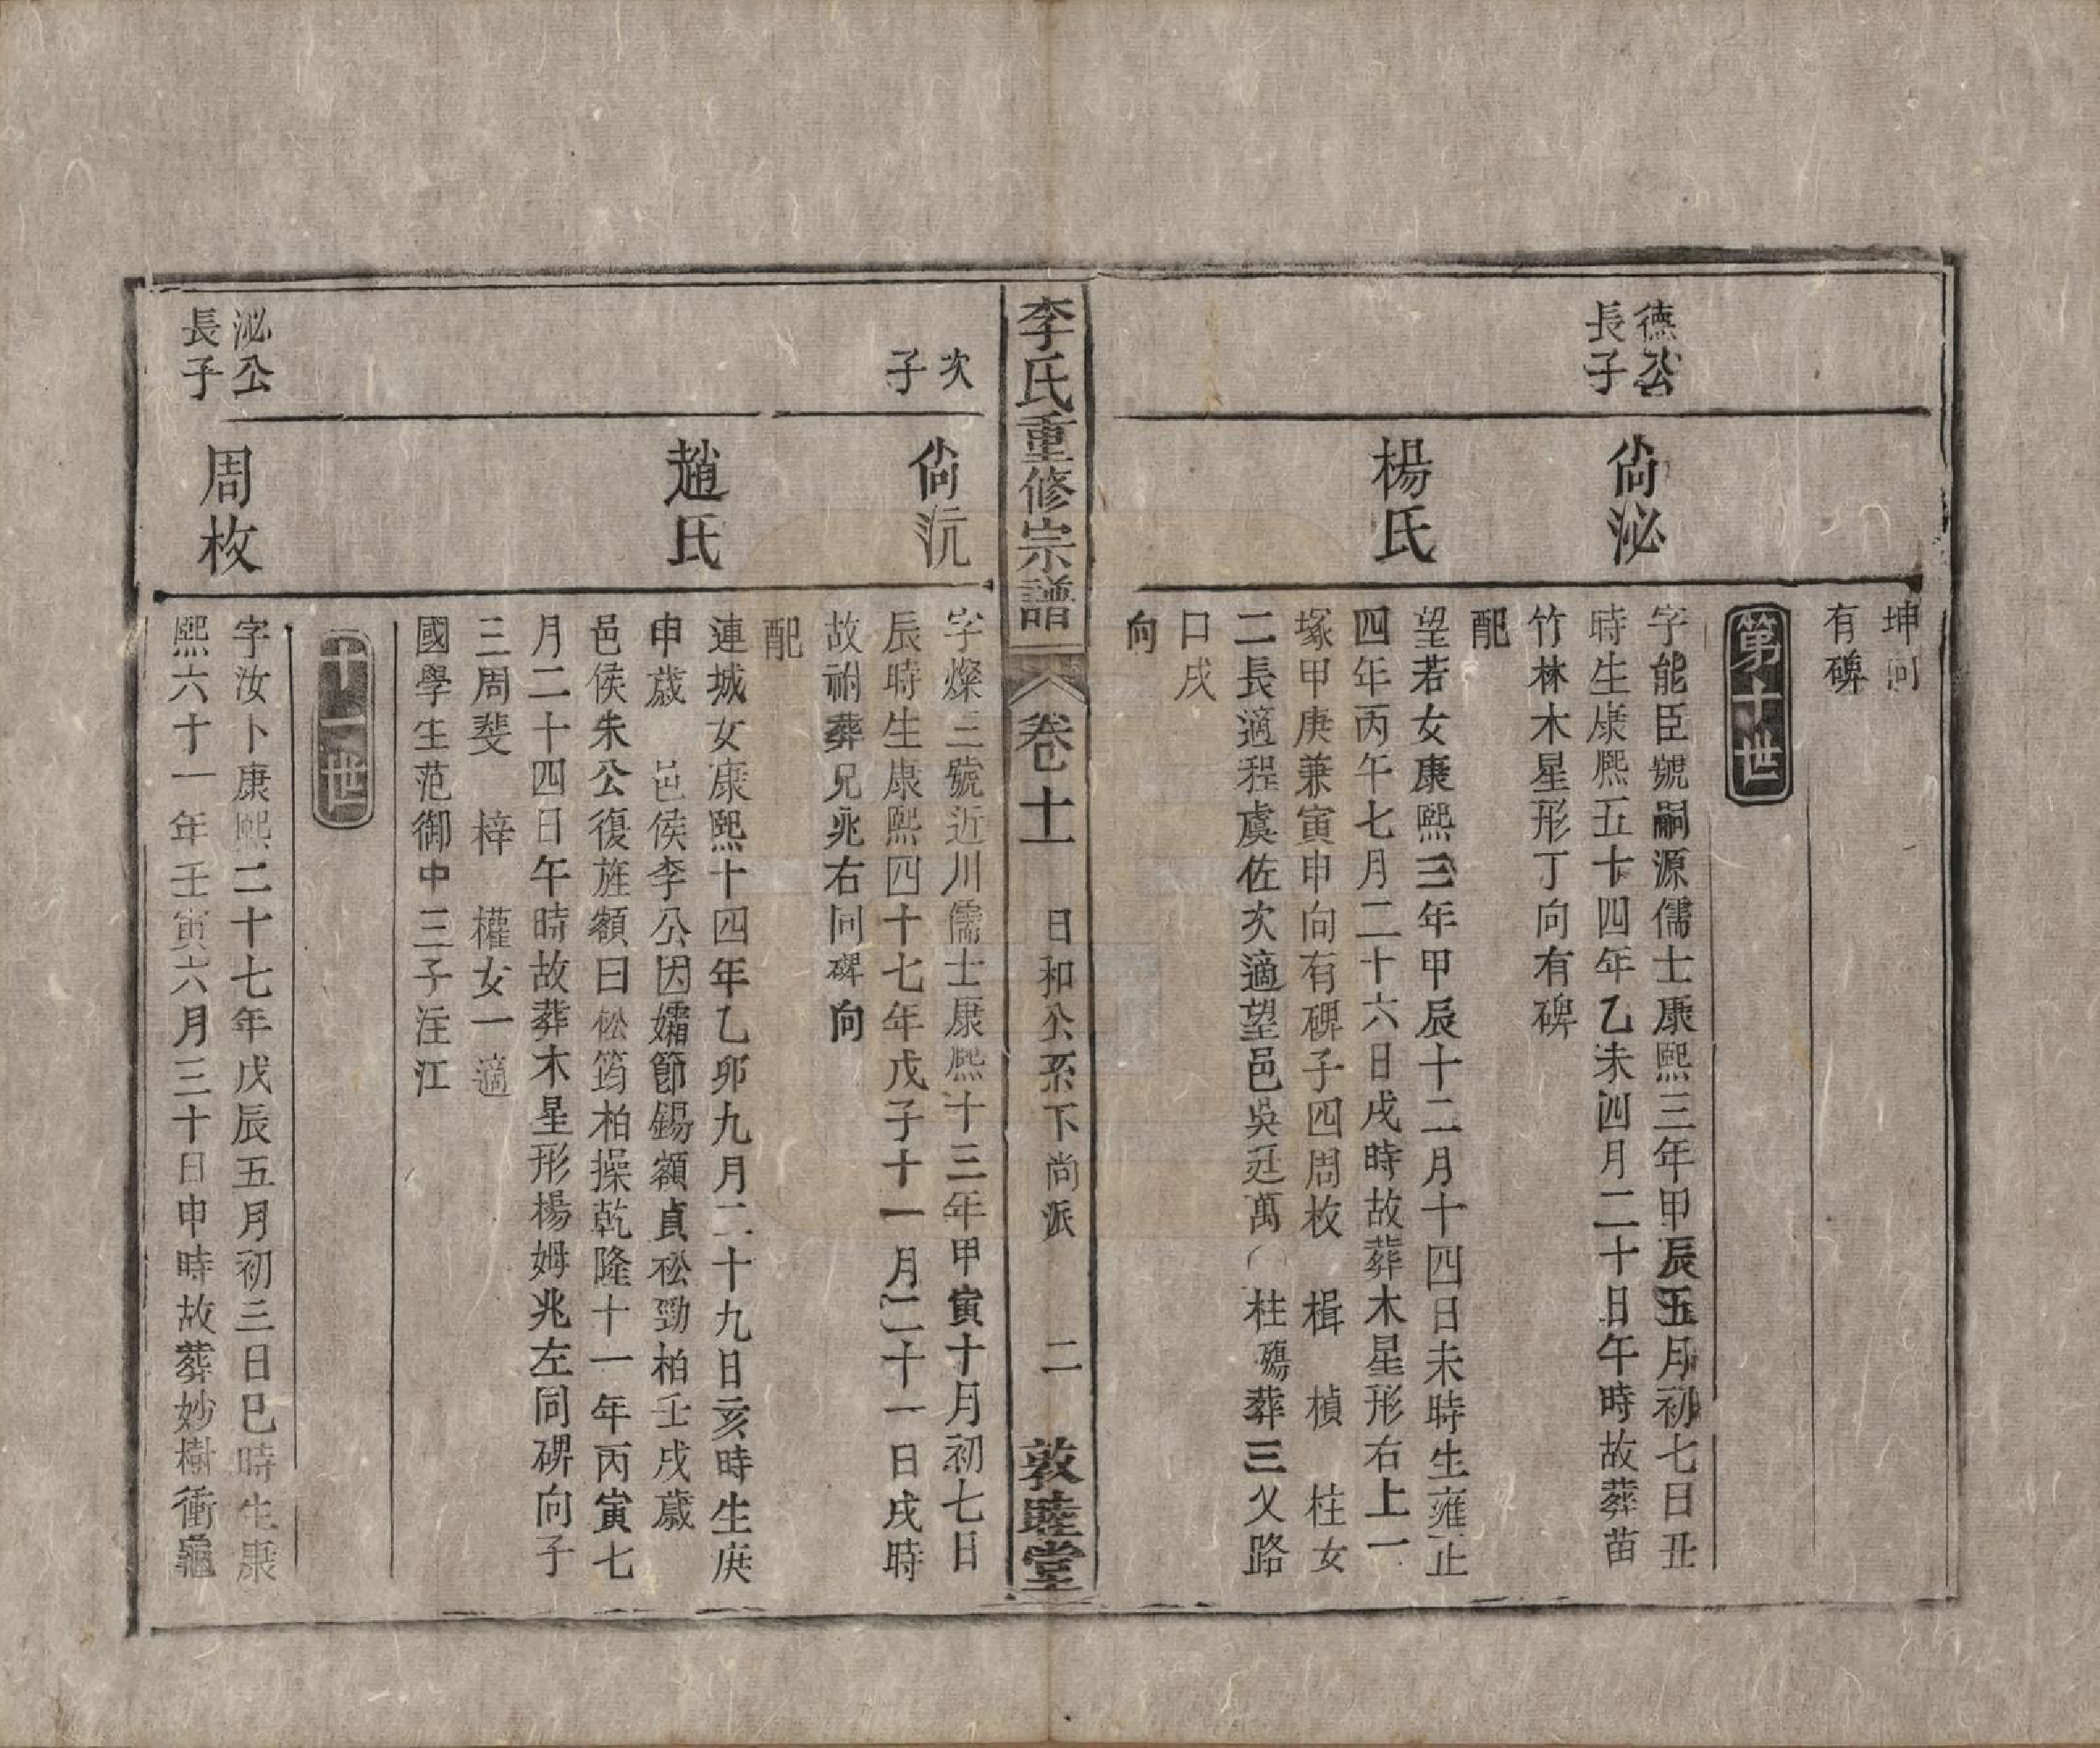 坤向
有碑
第十世
德公
長子
尙泌
字能臣號嗣源儒士康熙三年甲辰五月初七日丑
時生康熙五十四年乙未四月二十日午時故葬苗
竹林木星形丁向有碑
楊氏
配
望若女康熙三年甲辰十二月十四日未時生雍正
四年丙午七月二十六日戌時故葬木星形右上一
塚甲庚兼寅申向有碑子四周枚 楫 楨 柱女
二長適程虞佐次適望邑吳廷萬 柱殤葬三乂路
口戌
向
李氏重修宗譜 卷十一 日和公系下尚派 二 敦睦堂
次
子
尙沆
字燦三號近川儒士康熙十三年甲寅十月初七日
辰時生康熙四十七年戊子十一月二十一日戌時
故祔葬兄兆右同碑向
趙氏
配
連城女康熙十四年乙卯九月二十九日亥時生庚
申歲 邑侯李公因孀節錫額貞松勁柏壬戌歲
邑侯朱公復旌額曰松筠柏操乾隆十一年丙寅七
月二十四日午時故葬木星形楊姆兆左同碑向子
三周斐 梓 權女一適
國學生范御中三子注江
十一世
泌公
長子
周枚
字汝卜康熙二十七年戊辰五月初三日巳時生康
熙六十一年壬寅六月三十日申時故葬妙樹衝龜